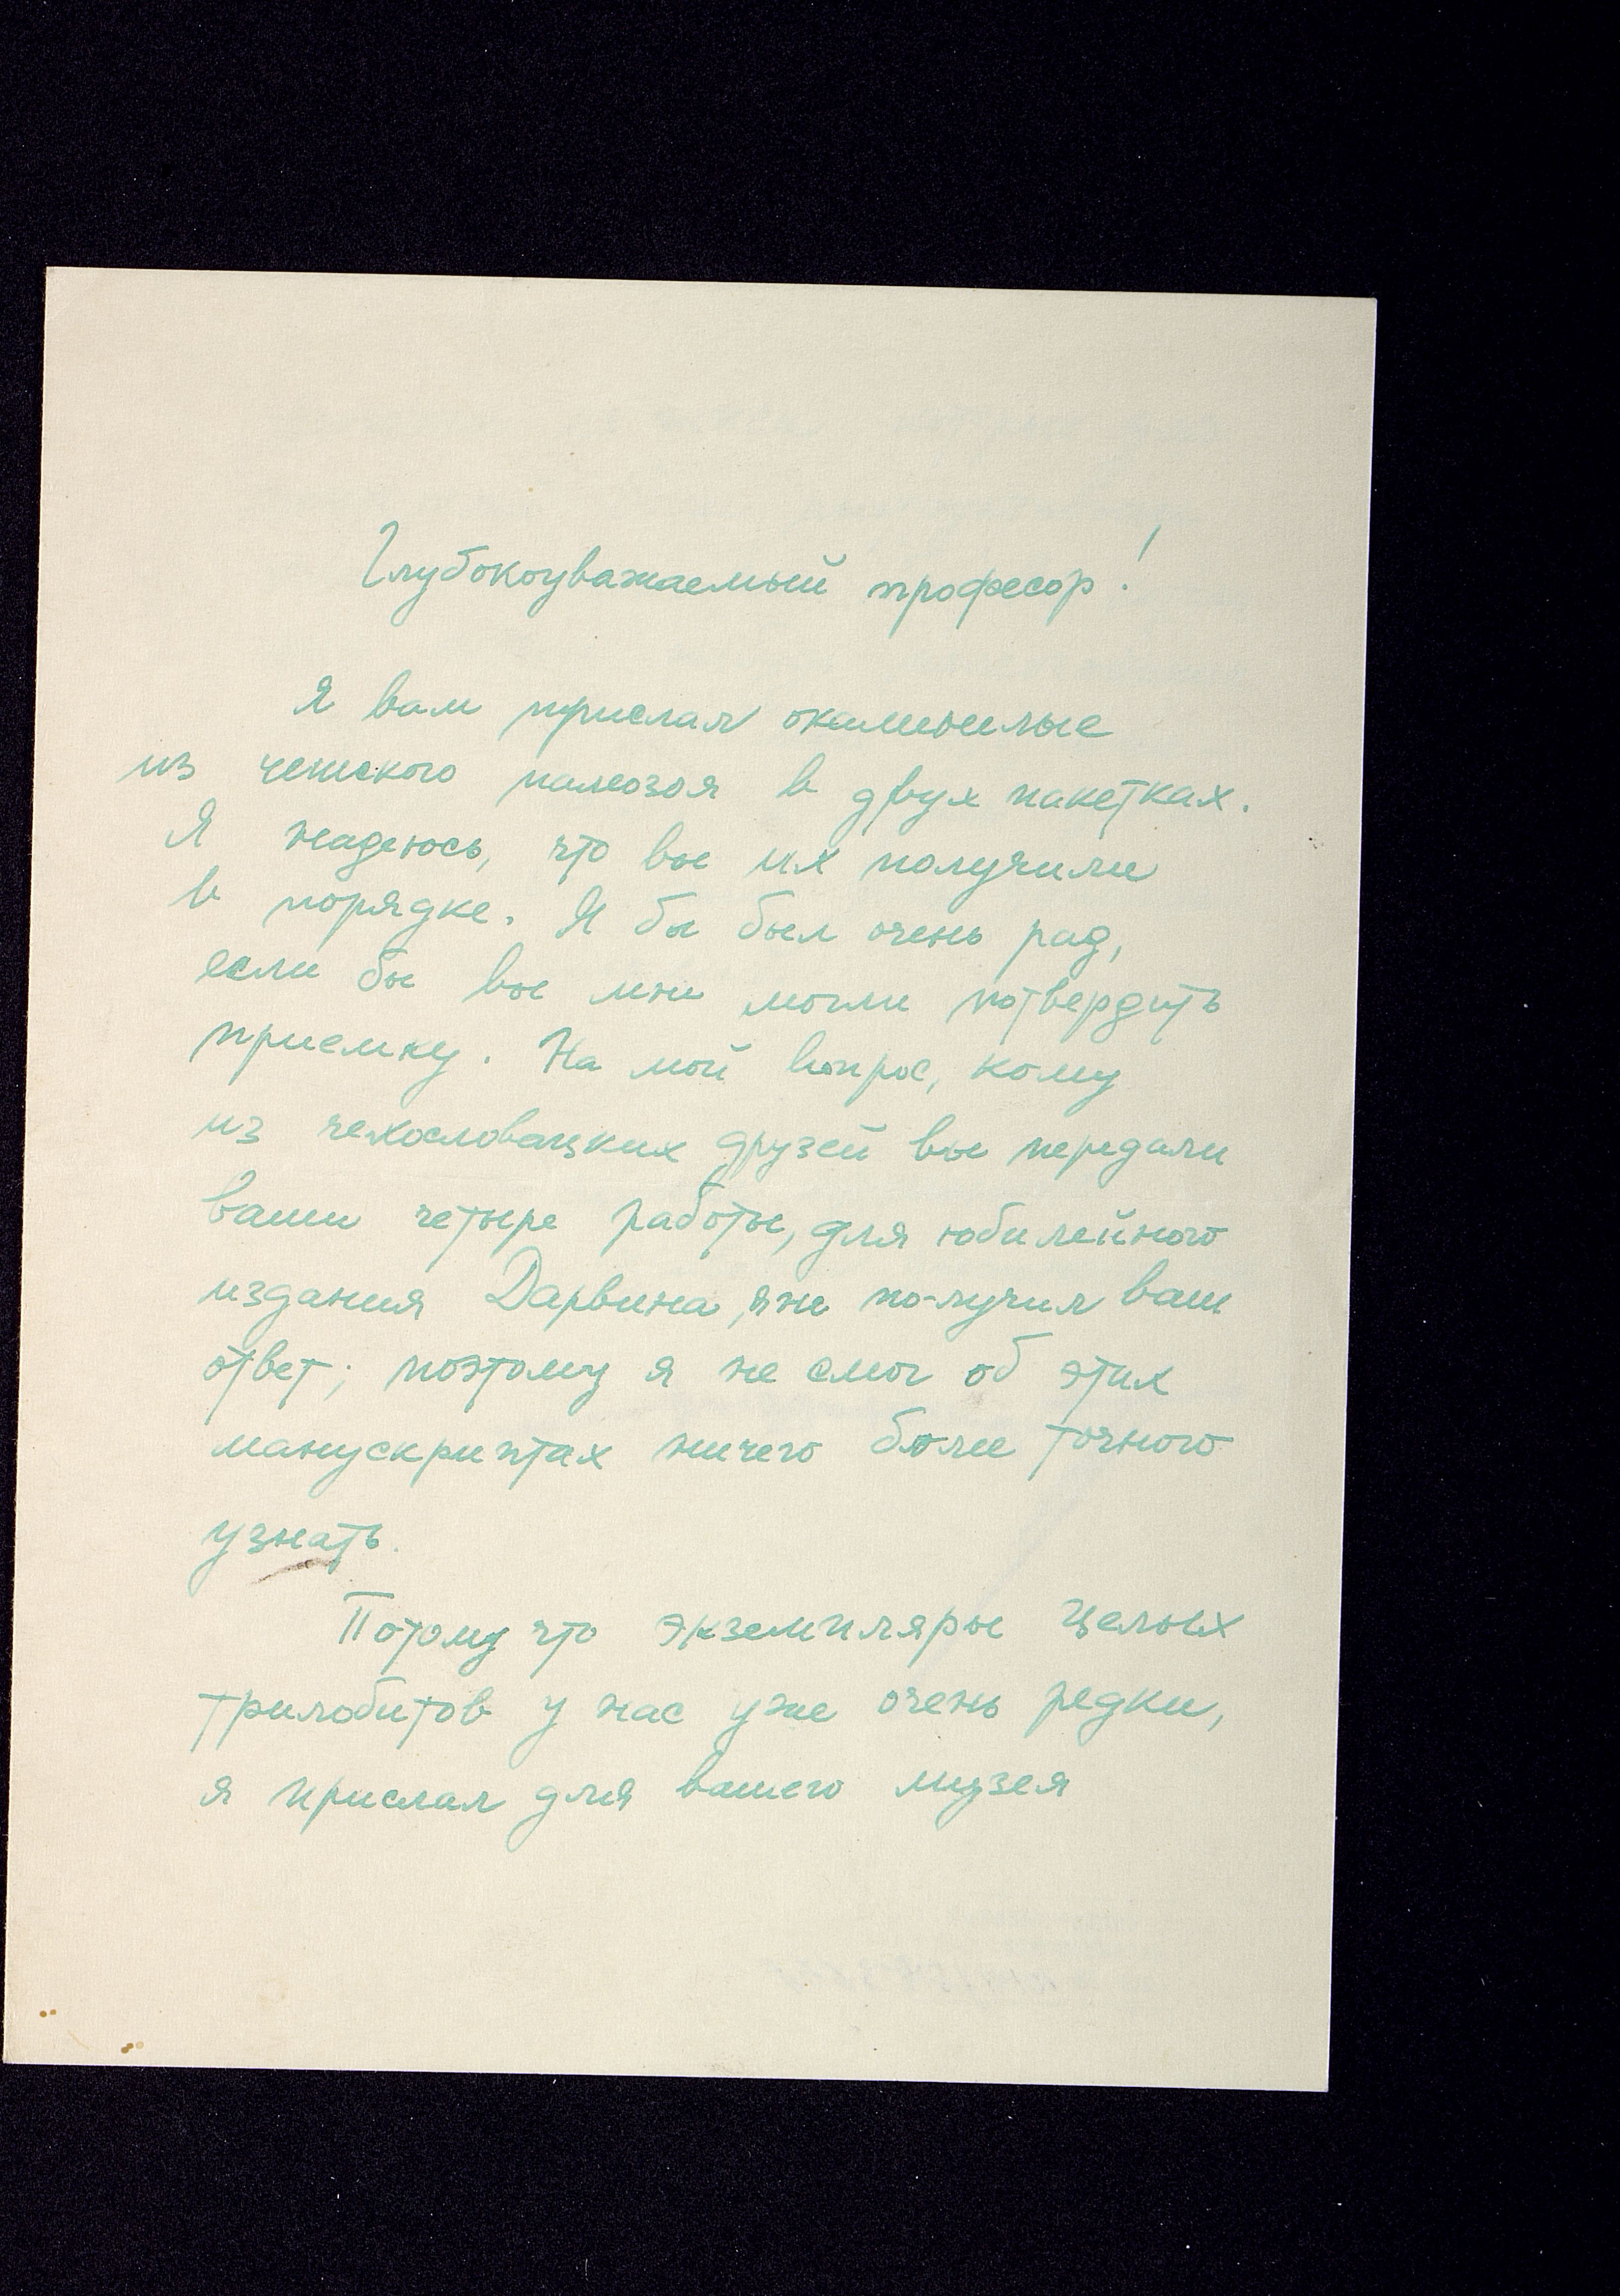 Глубокоуважаемый професор!
Я вам прислал окаменелые
из чешского палеозоя в двух пакетках.
Я надеюсь, что вы их получили
в порядке. Я бы был очень рад,
если бы вы мне могли потвердить
приемку. На мой вопрос, кому
из чехословацких друзей вы передали
ваши четыре работы, для юбилейного
издания Дарвина, я не получил ваш
ответ; поэтому я не смог об этих
манускриптах ничего более точного
узнать.
Потому что экземпляры целых
трилобитов у нас уже очень редки,
я прислал для вашего музея